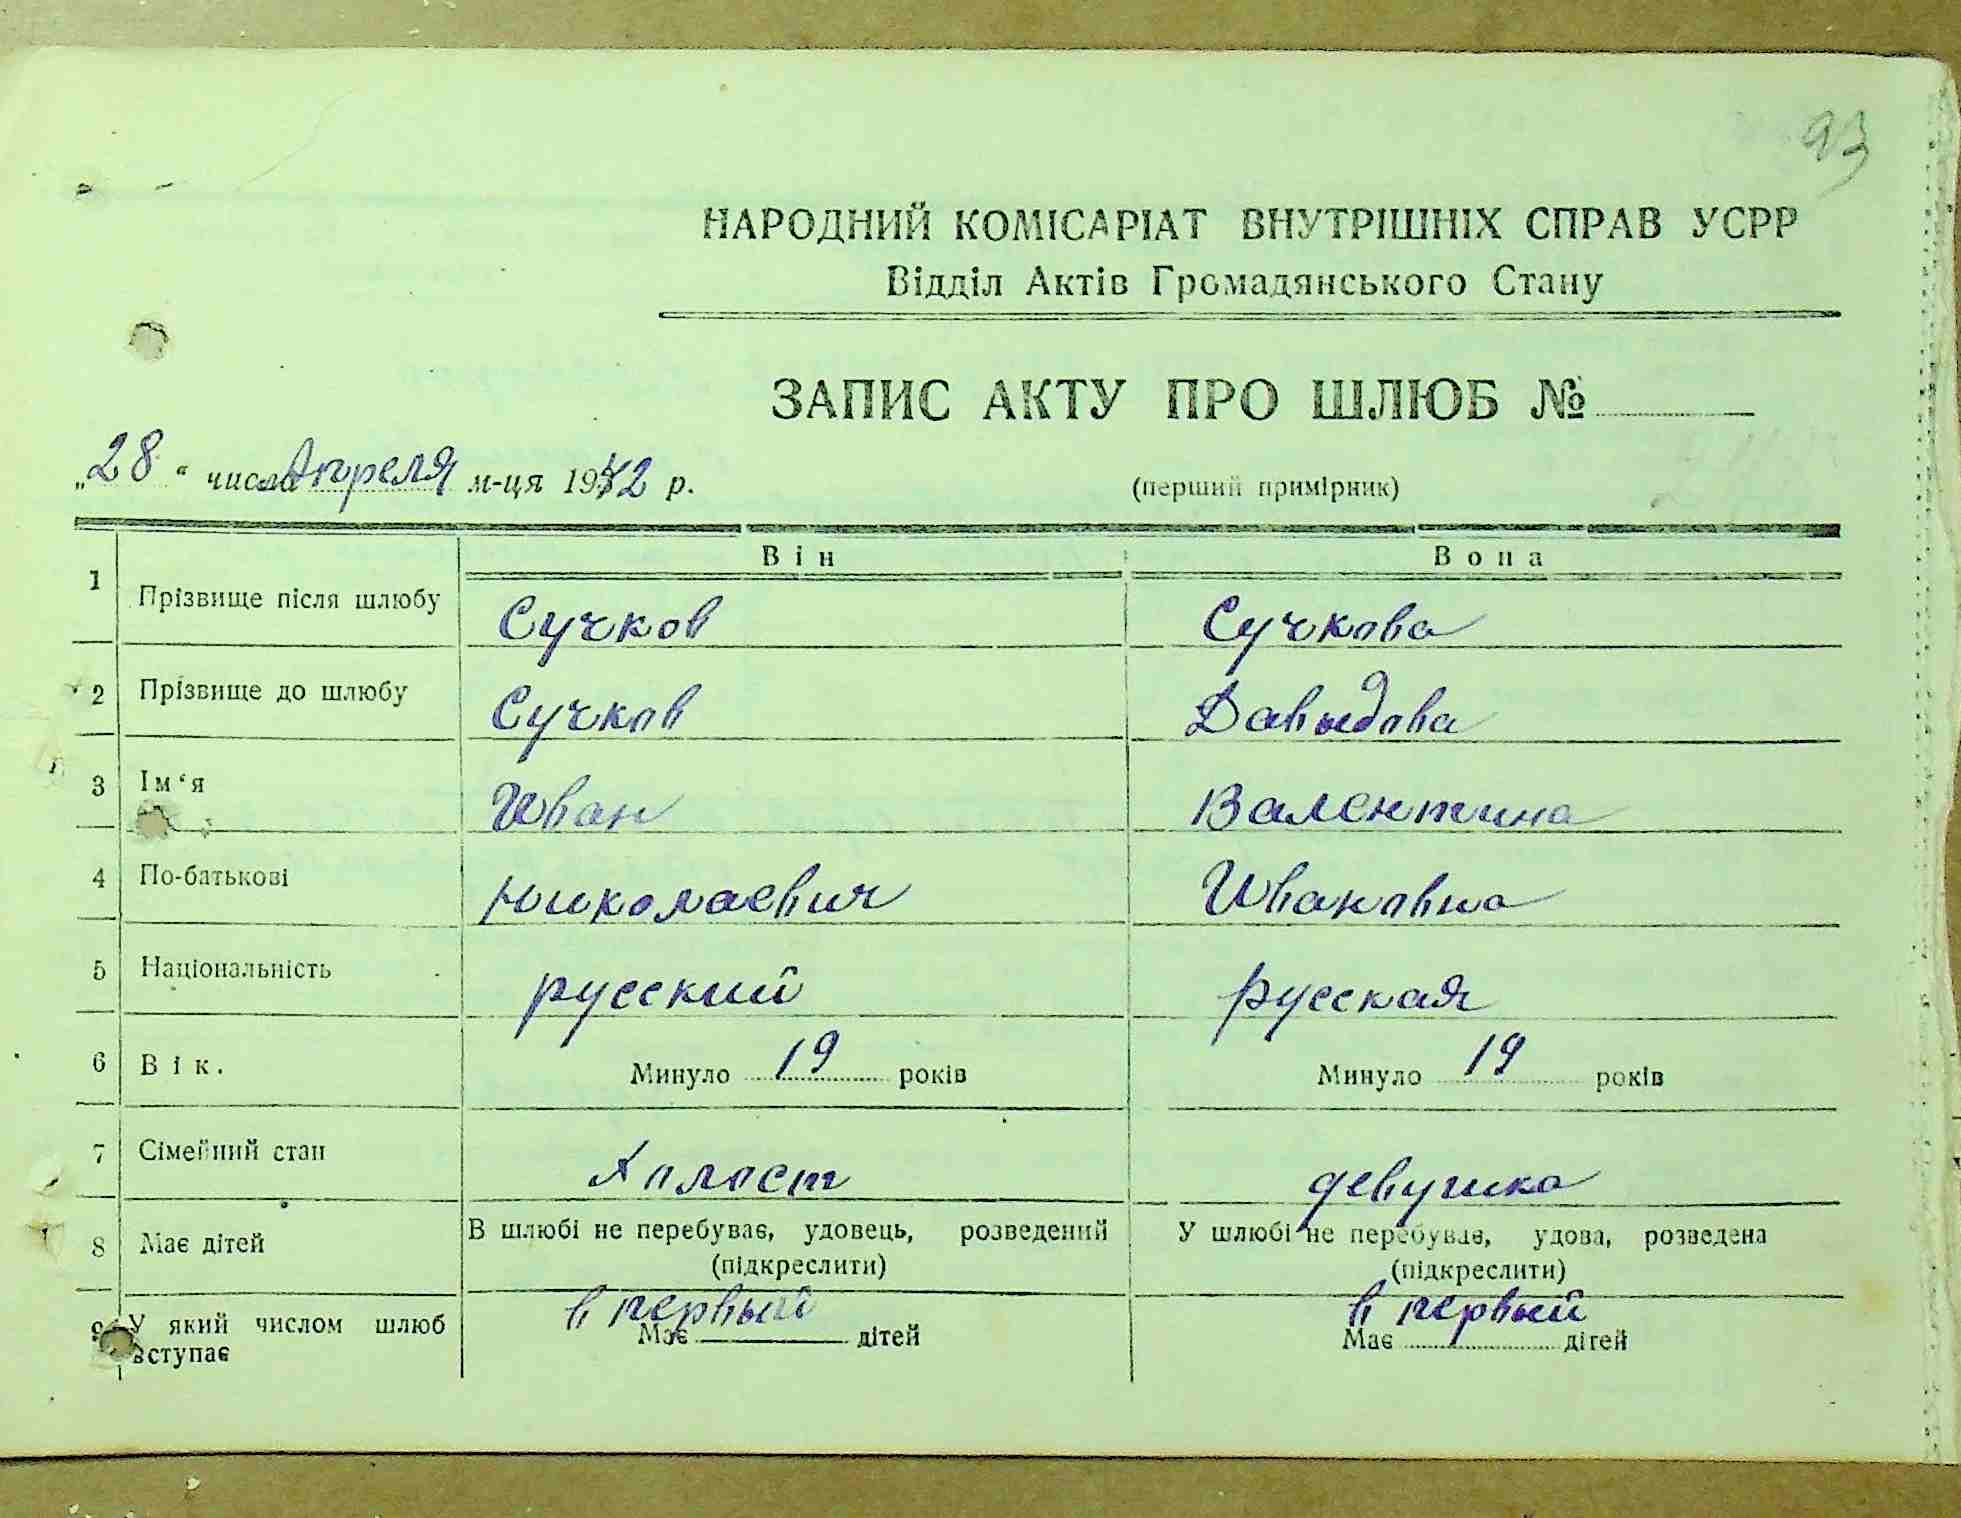 93
НАРОДНИЙ КОМІСАРІАТ ВНУТРІШНІХ СПРАВ УСРР
Відділ Актів Громадянського Стану
ЗАПИС АКТУ ПРО ШЛЮБ №
„28“ числа Апреля м-ця 1942 р. (перший примірник)
Він Вона
1 Прізвище після шлюбу Сучков Сучкова
2 Прізвище до шлюбу Сучков Давыдова
3 Ім‘я Иван Валентина
4 По-батькові Николаевич Ивановна
5 Національність русский русская
6 Вік. Минуло 19 років Минуло 19 років
7 Сімейний стан Холост девушка
8 Має дітей В шлюбі не перебуває, удовець, розведений У шлюбі не перебуває, удова, розведена
(підкреслити) (підкреслити)
в первый в первый
9 У який числом шлюб Має дітей Має дітей
вступає